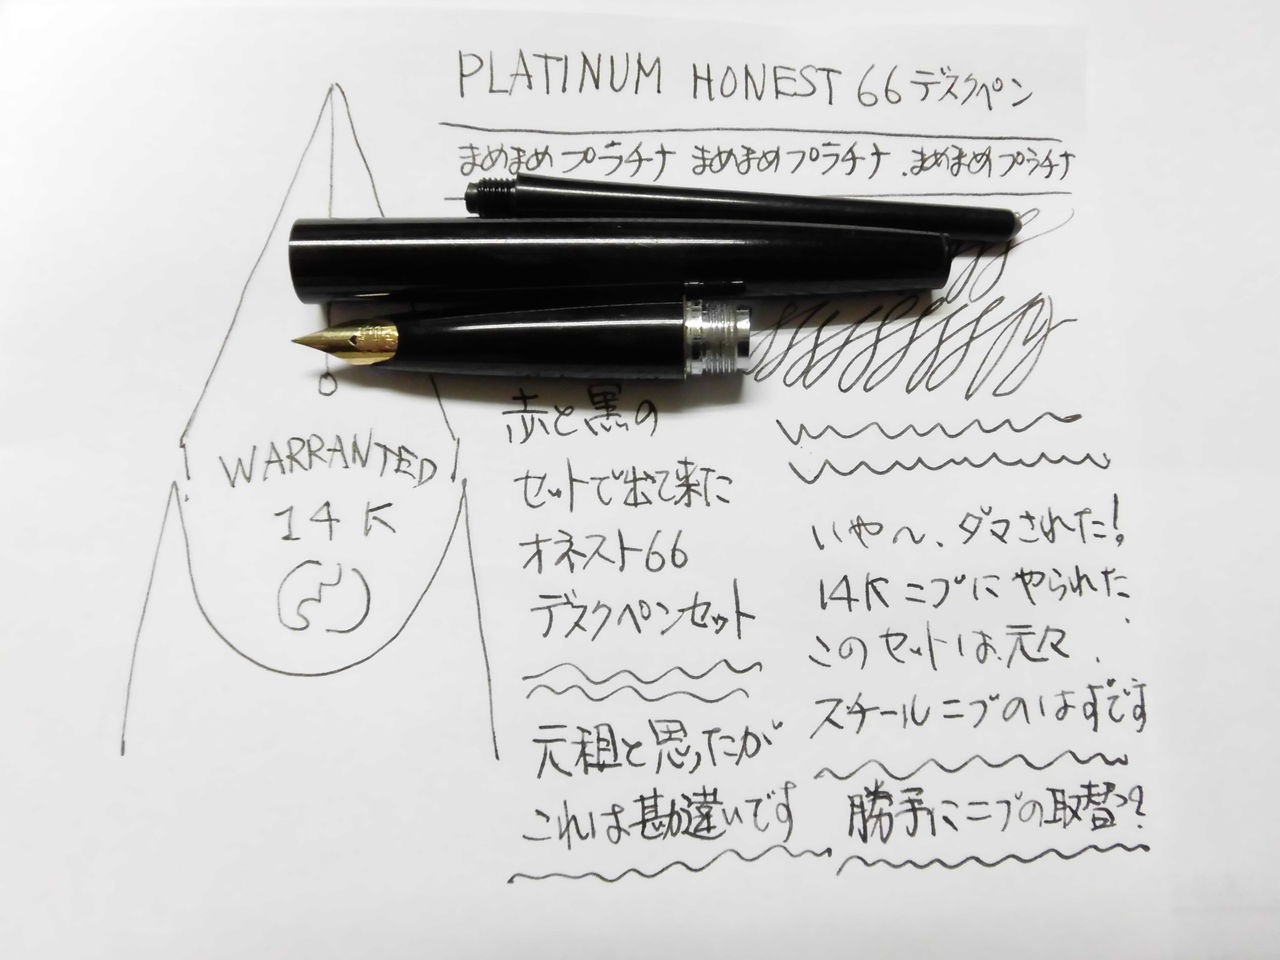 PLATINUM HONEST 66 デスクペン
まめまめプラチナ まめまめプラチナ.まめまめプラチナ
WARRANTED
14K
赤と黒の
セットで出て来た
オネスト66
デスクペンセット
元祖と思ったが
これは勘違いです
いや〜、ダマされた!
14Kニブにやられた.
このセットは、元々、
スチールニブのはずです
勝手にニブの取替?